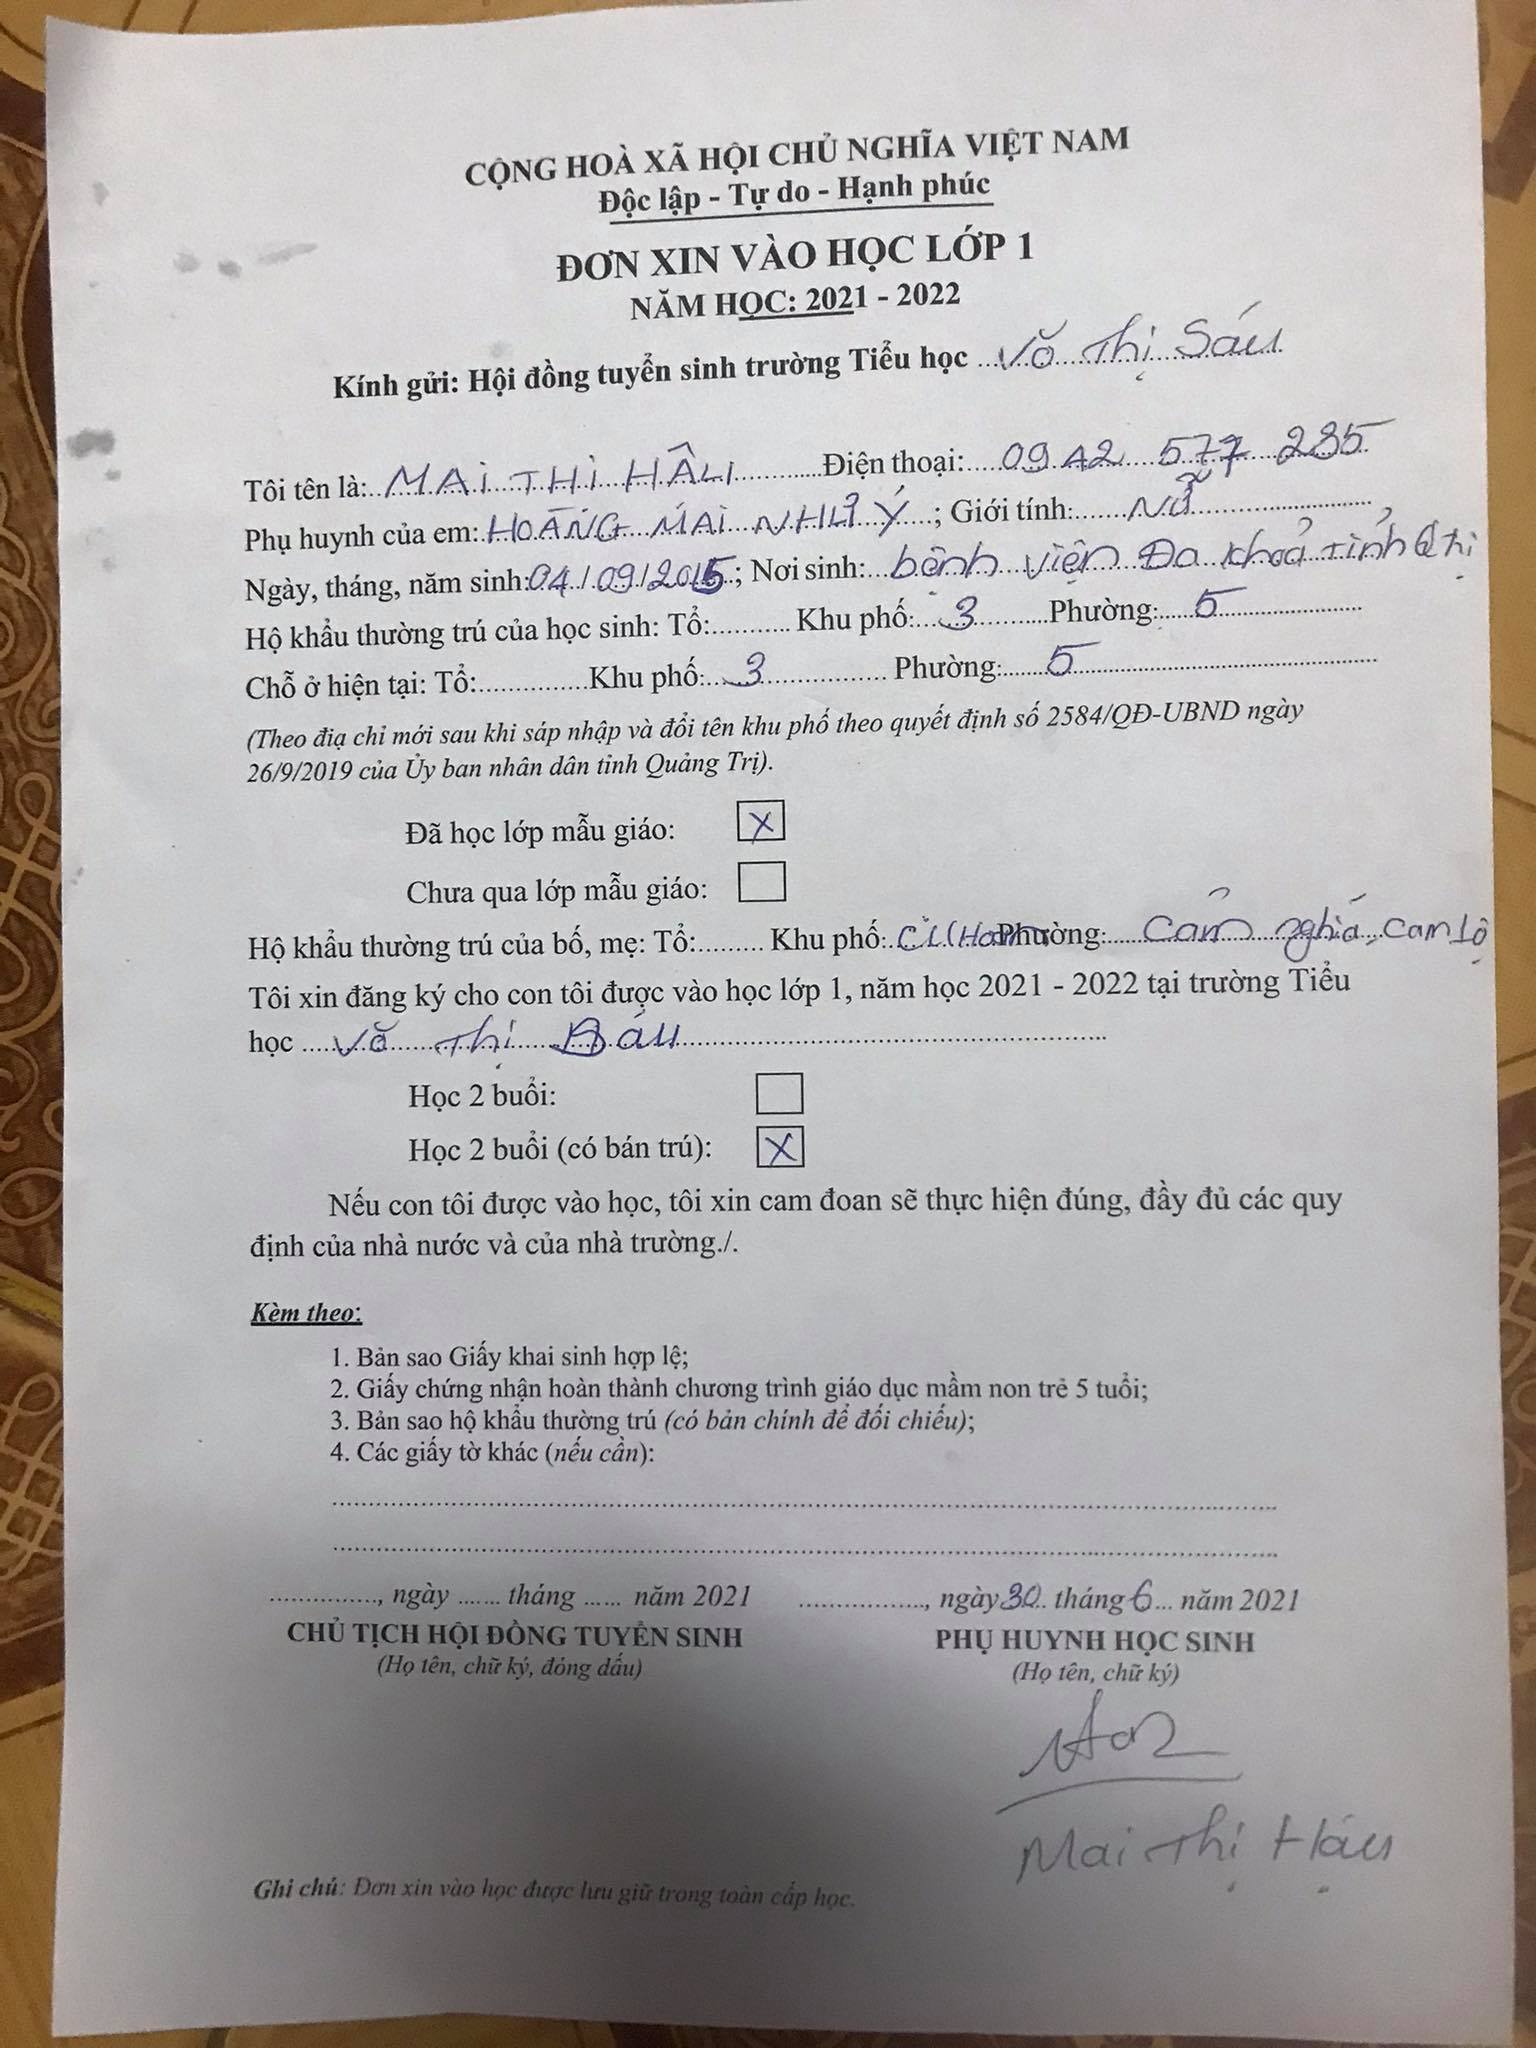 CỘNG HOÀ XÃ HỘI CHỦ NGHĨA VIỆT NAM
Độc lập - Tự do - Hạnh phúc
ĐƠN XIN VÀO HỌC LỚP 1
NĂM HỌC: 2021 - 2022
Kính gửi: Hội đồng tuyển sinh trường Tiểu học Võ Thị Sáu
Tôi tên là: MAI THỊ HÂU Điện thoại: 0942 577 235
Phụ huynh của em: HOÀNG MAI NHƯ Ý; Giới tính: Nữ
Ngày, tháng, năm sinh: 04/09/2015; Nơi sinh: bệnh viện Đa khoa tỉnh Q trị
Hộ khẩu thường trú của học sinh: Tổ:........... Khu phố: 3 Phường: 5
Chỗ ở hiện tại: Tổ:............... Khu phố: 3 Phường: 5
(Theo địa chỉ mới sau khi sáp nhập và đổi tên khu phố theo quyết định số 2584/QĐ-UBND ngày
26/9/2019 của Ủy ban nhân dân tỉnh Quảng Trị).
Đã học lớp mẫu giáo: X
Chưa qua lớp mẫu giáo:
Hộ khẩu thường trú của bố, mẹ: Tổ:......... Khu phố: Phường: Cam nghĩa, Cam Lộ
Tôi xin đăng ký cho con tôi được vào học lớp 1, năm học 2021 - 2022 tại trường Tiểu
học Võ Thị Sáu
Học 2 buổi:
Học 2 buổi (có bán trú): X
Nếu con tôi được vào học, tôi xin cam đoan sẽ thực hiện đúng, đầy đủ các quy
định của nhà nước và của nhà trường./.
Kèm theo:
1. Bản sao Giấy khai sinh hợp lệ;
2. Giấy chứng nhận hoàn thành chương trình giáo dục mầm non trẻ 5 tuổi;
3. Bản sao hộ khẩu thường trú (có bản chính để đối chiếu);
4. Các giấy tờ khác (nếu cần):
..............., ngày ....... tháng ...... năm 2021
CHỦ TỊCH HỘI ĐỒNG TUYỂN SINH
(Họ tên, chữ ký, đóng dấu)
.................., ngày 30 tháng 6 năm 2021
PHỤ HUYNH HỌC SINH
(Họ tên, chữ ký)
Mai Thị Hậu
Ghi chú: Đơn xin vào học được lưu giữ trong toàn cấp học.